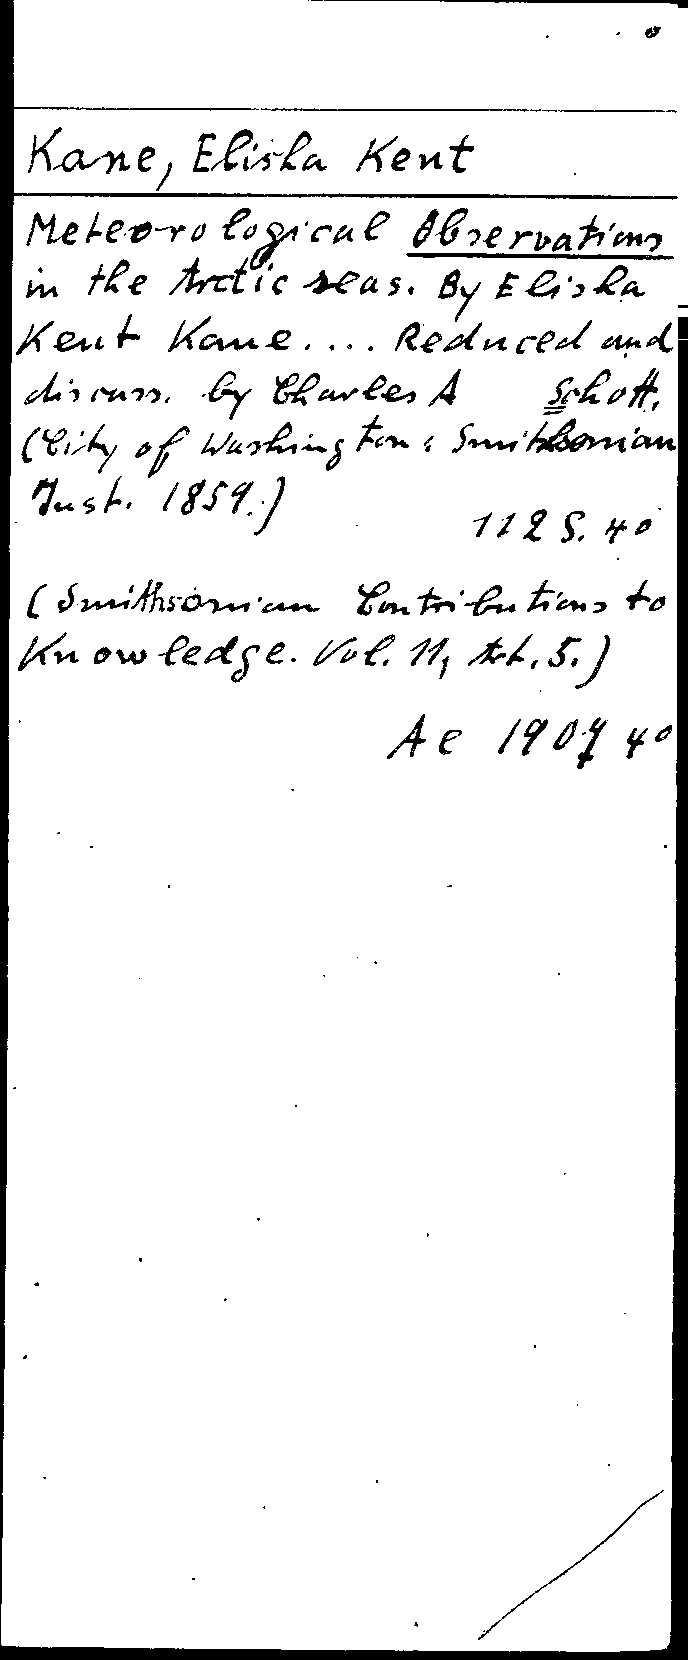 Kane, Elisha Kent
Meteorological Observations
in the Arctic seas. By Elisha
Kent Kane.... Reduced and
discuss. by Charles A Schott.
(City of Washington: Smithsonian
Inst. 1859.)
112 S. 4°
(Smithsonian Contributions to
Knowledge. Vol. 11, Art. 5.)
Ae 1907 4°